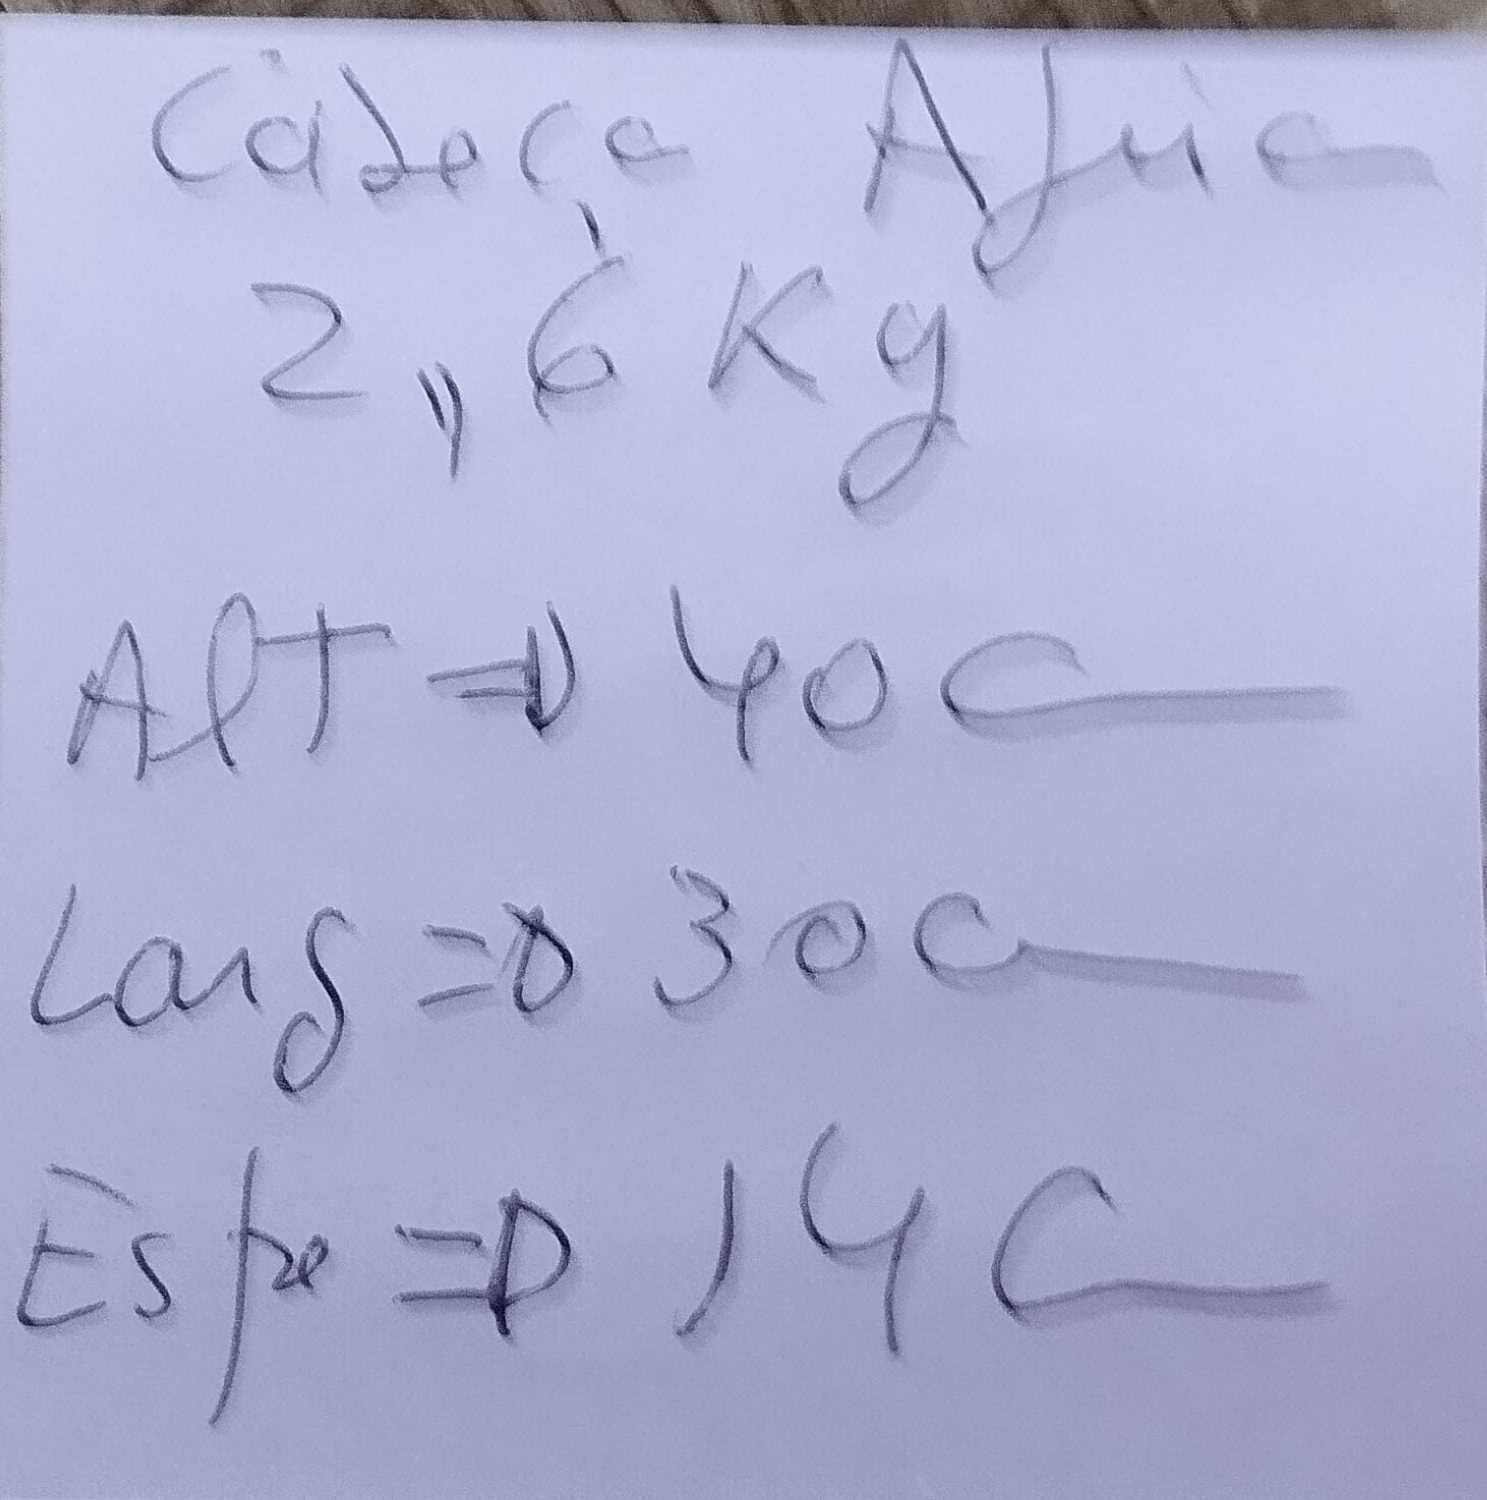 Cabeça Africa
2,,6 Kg
Alt => 40 Cm
Larg => 30 Cm
Espe => 14 Cm